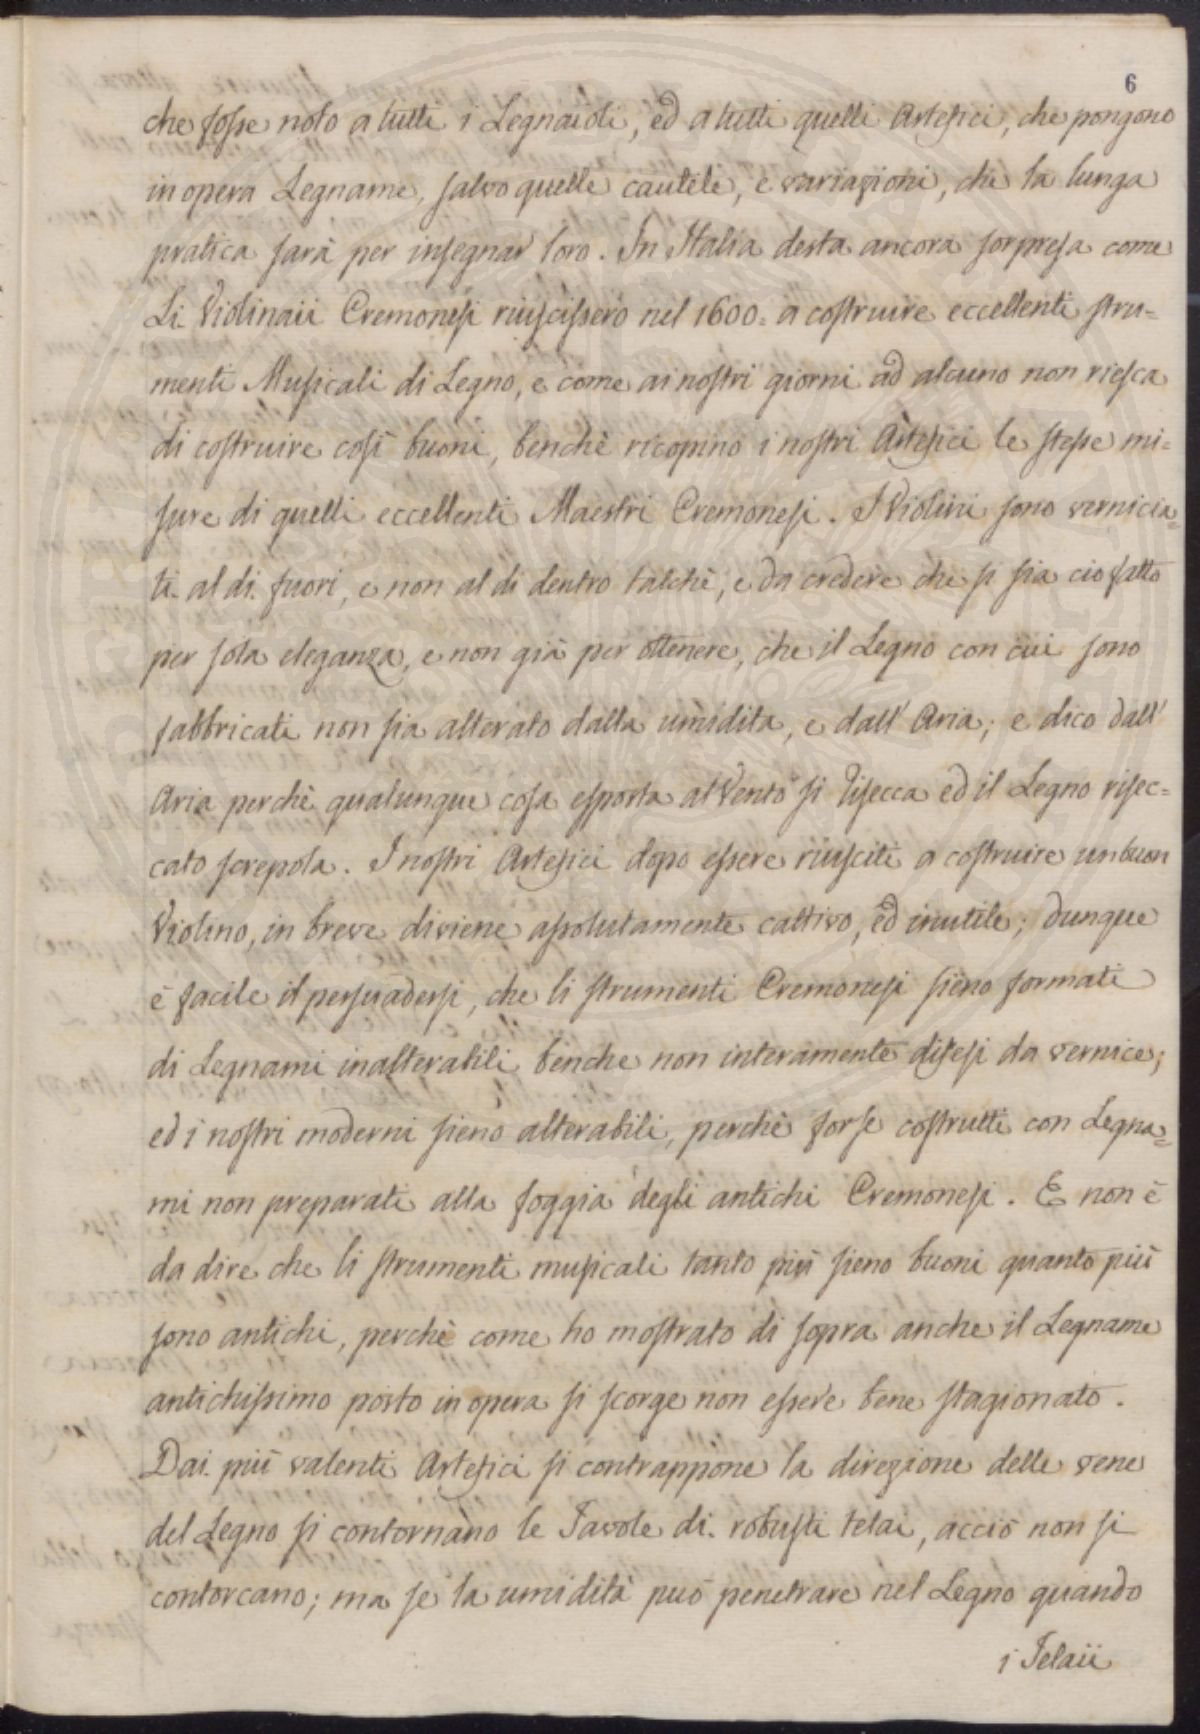 6
che fosse noto a tutti i Legnaioli, ed a tutti quelli Artefici, che pongono
in opera Legname, salvo quelle cautele, e variazioni, che la lunga
pratica sarà per insegnar loro. In Italia desta ancora sorpresa come
Li Violinaii Cremonesi riuscissero nel 1600. a costruire eccellenti stru=
menti Musicali di Legno, e come ai nostri giorni ad alcuno non riesca
di costruire così buoni, benchè ricopino i nostri Artefici le stesse mi=
sure di quelli eccellenti Maestri Cremonesi. I Violini sono vernicia=
ti al di fuori, e non al di dentro talchè, e da credere che si sia cio fatto
per sola eleganza, e non già per ottenere, che il Legno con cui sono
fabbricati non sia alterato dalla umidita, e dall' Aria; e dico dall'
Aria perchè qualunque cosa esposta al Vento si risecca ed il Legno risec=
cato screpola. I nostri Artefici dopo essere riusciti a costruire un buon
Violino, in breve diviene assolutamente cattivo, ed inutile; dunque
è facile il persuadersi, che li strumenti Cremonesi sieno formati
di Legnami inalterabili benche non interamente difesi da vernice;
ed i nostri moderni sieno alterabili, perchè forse costrutti con Legna=
mi non preparati alla foggia degli antichi Cremonesi. E non è
da dire che li strumenti musicali tanto più sieno buoni quanto più
sono antichi, perchè come ho mostrato di sopra anche il Legname
antichissimo posto in opera si scorge non essere bene stagionato.
Dai più valenti Artefici si contrappone la direzione delle vene
del Legno si contornano le Tavole di robusti telai, acciò non si
contorcano; ma se la umidità può penetrare nel Legno quando
i Telaii